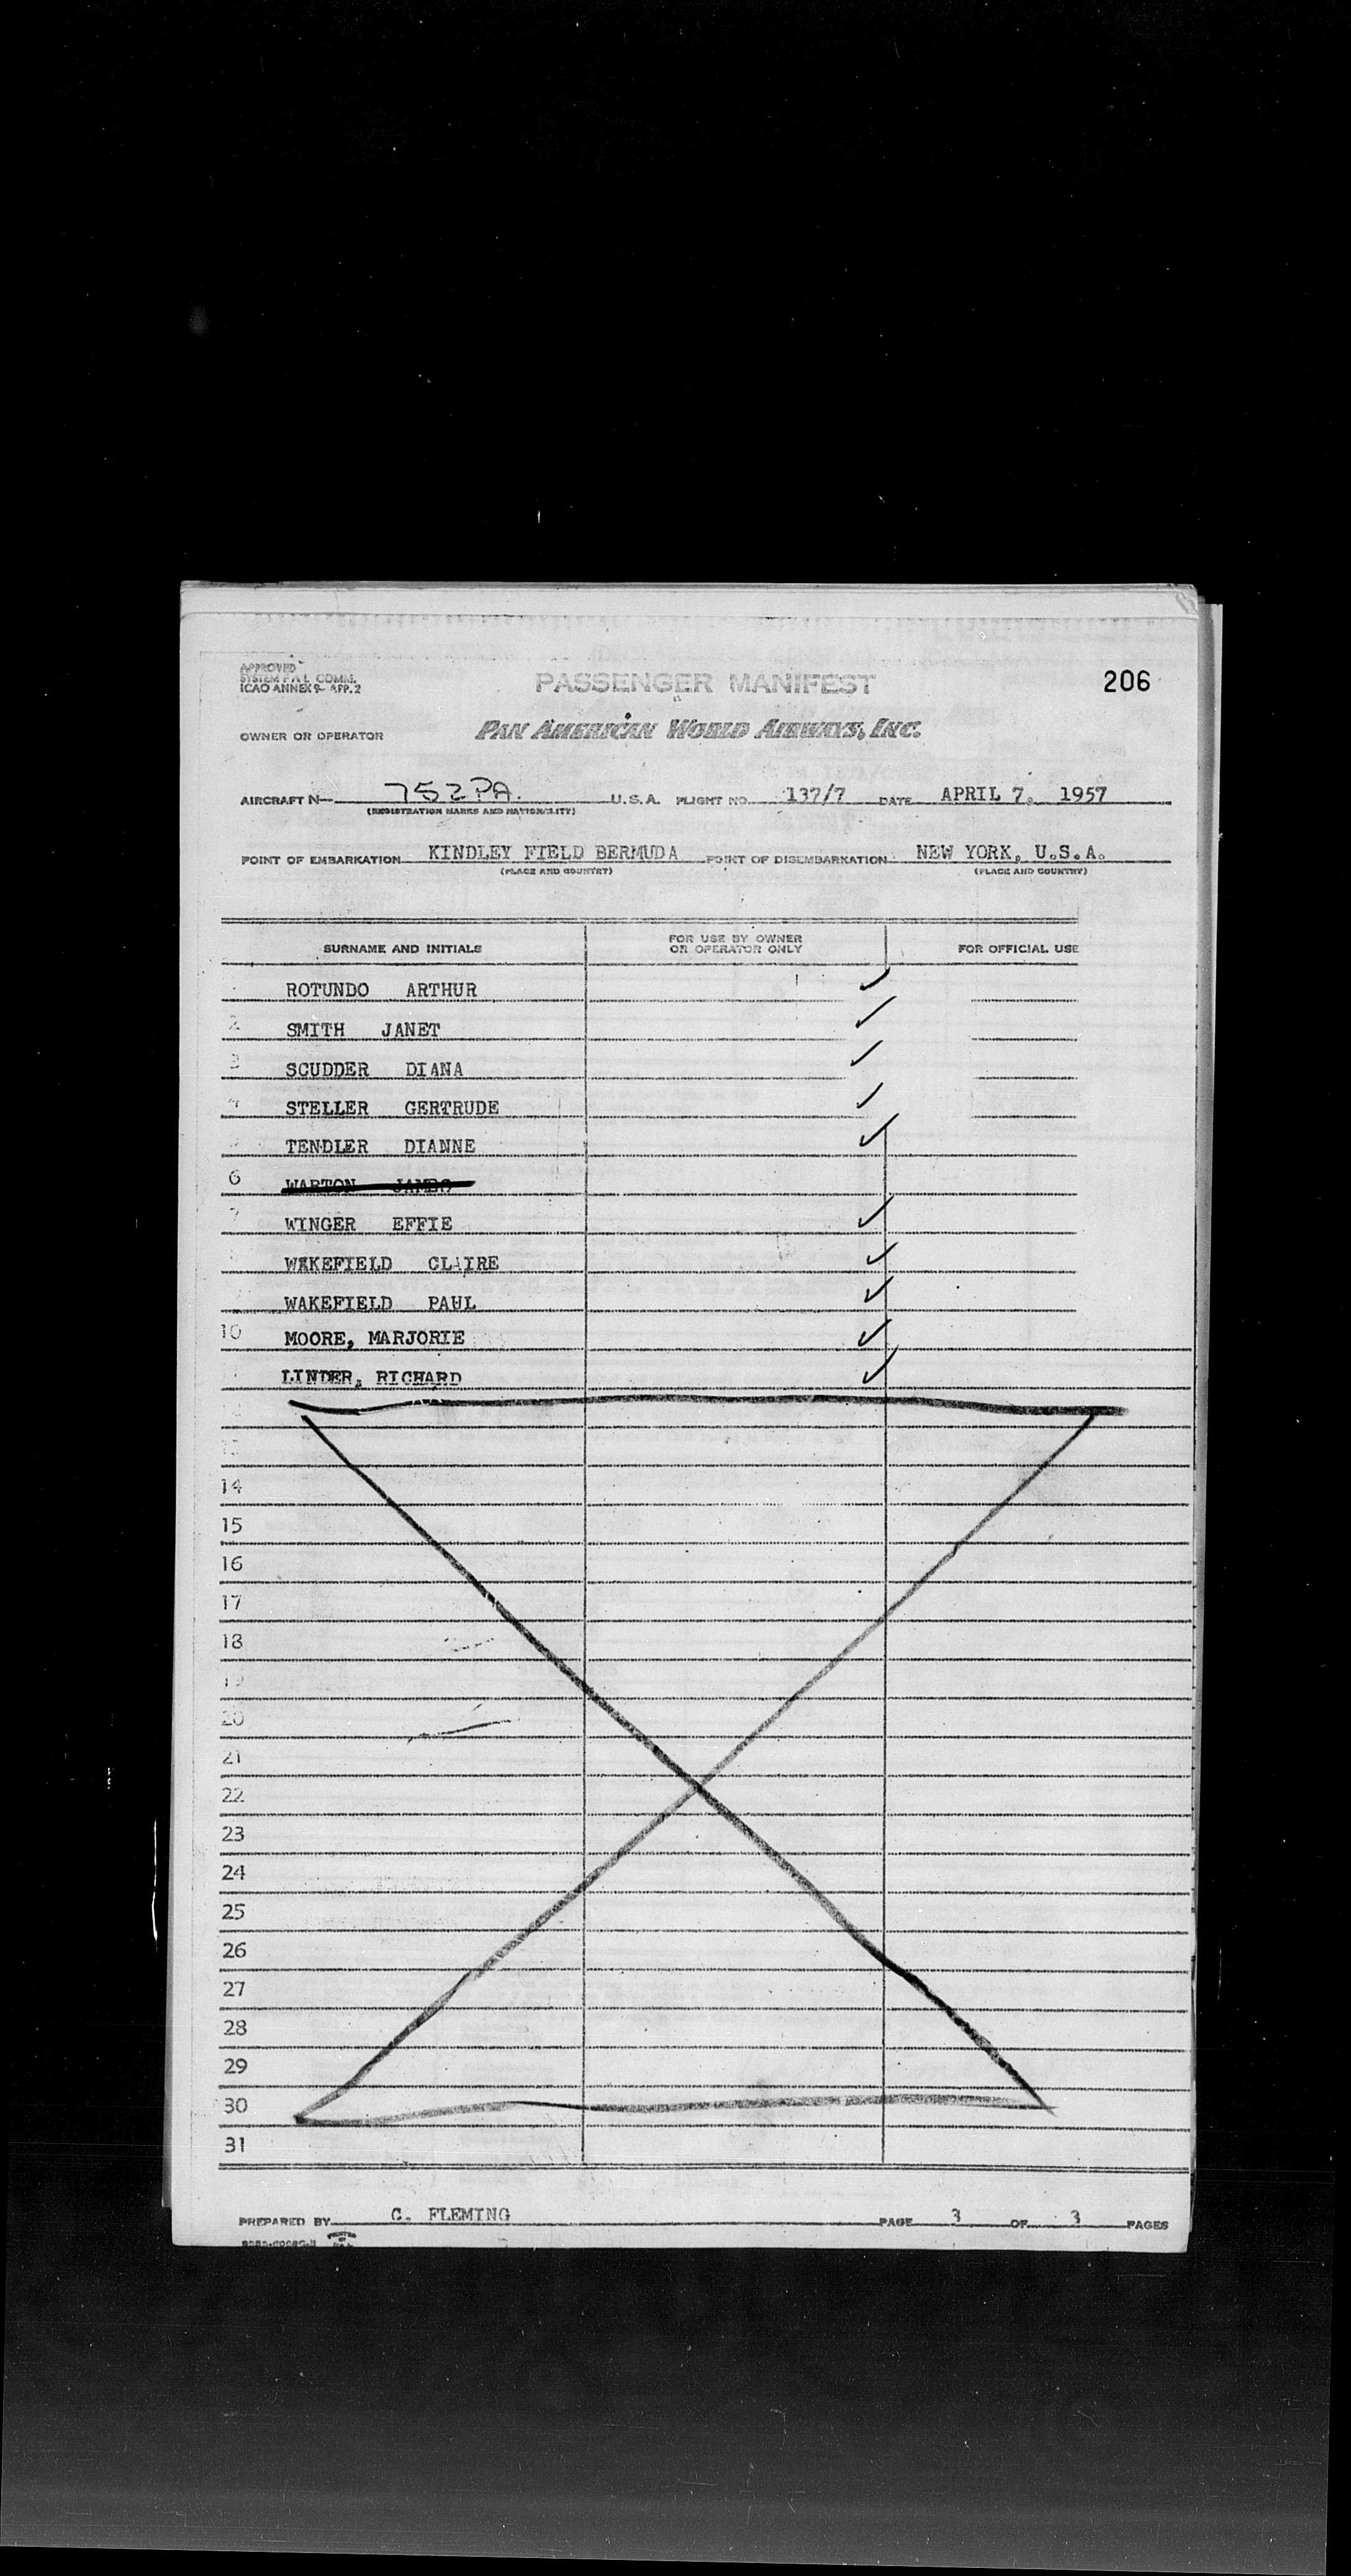 APPROVED
SYSTEM F A L COMM.
ICAO ANNEX 9- APP. 2
PASSENGER MANIFEST
206
OWNER OR OPERATOR
PAN AMERICAN WORLD AIRWAYS, INC.
AIRCRAFT N— 752PA. U.S.A. FLIGHT NO. 137/7 DATE APRIL 7, 1957
(REGISTRATION MARKS AND NATIONALITY)
POINT OF EMBARKATION KINDLEY FIELD BERMUDA POINT OF DISEMBARKATION NEW YORK, U.S.A.
(PLACE AND COUNTRY) (PLACE AND COUNTRY)
SURNAME AND INITIALS FOR USE BY OWNER OR OPERATOR ONLY FOR OFFICIAL USE
ROTUNDO ARTHUR
2 SMITH JANET
3 SCUDDER DIANA
4 STELLER GERTRUDE
TENDLER DIANNE
6 WARTON JAMES
7 WINGER EFFIE
WAKEFIELD CLAIRE
WAKEFIELD PAUL
10 MOORE, MARJORIE
LINDER, RICHARD
13
14
15
16
17
18
19
20
21
22
23
24
25
26
27
28
29
30
31
PREPARED BY C. FLEMING PAGE 3 OF 3 PAGES